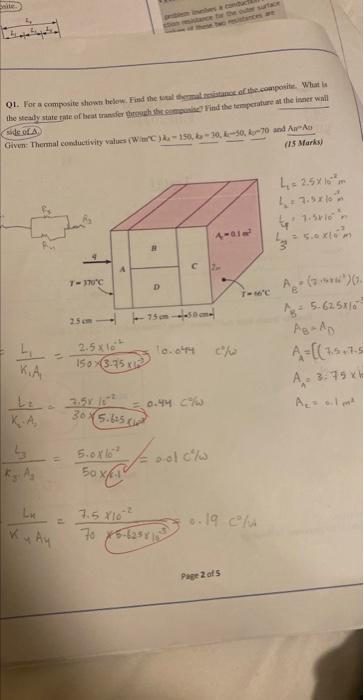 problem involves a conduction
resistance for the outer surface
of these two resistances are
Q1. For a composite shown below. Find the total thermal resistance of the composite. What is
the steady state rate of heat transfer through the composite? Find the temperature at the inner wall
side of A.
Given: Thermal conductivity values (W/m°C) kA = 150, kB = 30, kC=50, kD=70 and AB=AD
(15 Marks)
L₁ = 2.5 x 10⁻² m
L₂ = 7.5 x 10⁻² m
L₄ = 7.5 x 10⁻² m
L₃ = 5.0 x 10⁻² m
R₂
R₃
R₄
A₁=0.1m²
B
A
C
D
q
T=370°C
T=66°C
2.5 cm
7.5 cm
5.0 cm
A_B = 5.625x10
A_B = A_D
A_A = [(7.5+7.5
A_A = 3.75 x
A_C = 0.1 m²
L₁/K₁A₁ = 2.5 x 10⁻²/150 x 3.75 x 10⁻³ = 0.044 C°/W
L₂/K₂A₂ = 7.5 x 10⁻²/30 x 5.625 x 10⁻³ = 0.44 C°/W
L₃/K₃A₃ = 5.0 x 10⁻²/50 x 0.1 = 0.01 C°/W
L₄/K₄A₄ = 7.5 x 10⁻²/70 x 5.625 x 10⁻³ = 0.19 C°/W
Page 2 of 5